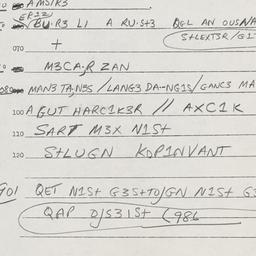 A MSIR3
ER32
BU.R3 LI A RU.St3 QGL AN OUSNA
070 + StLEXT3R/GI
M3CA.R ZAN
MAN3 TA,N3S /LANG3 DA--NG1S/GANC3 MA
100 A GUT HARC1K3R // AXC1K
110 SART M3X N1St
120 StLUGN KDP1NVANT
901 QET N1St G3StTO/GN N1St G3
QAP D/S31St (986